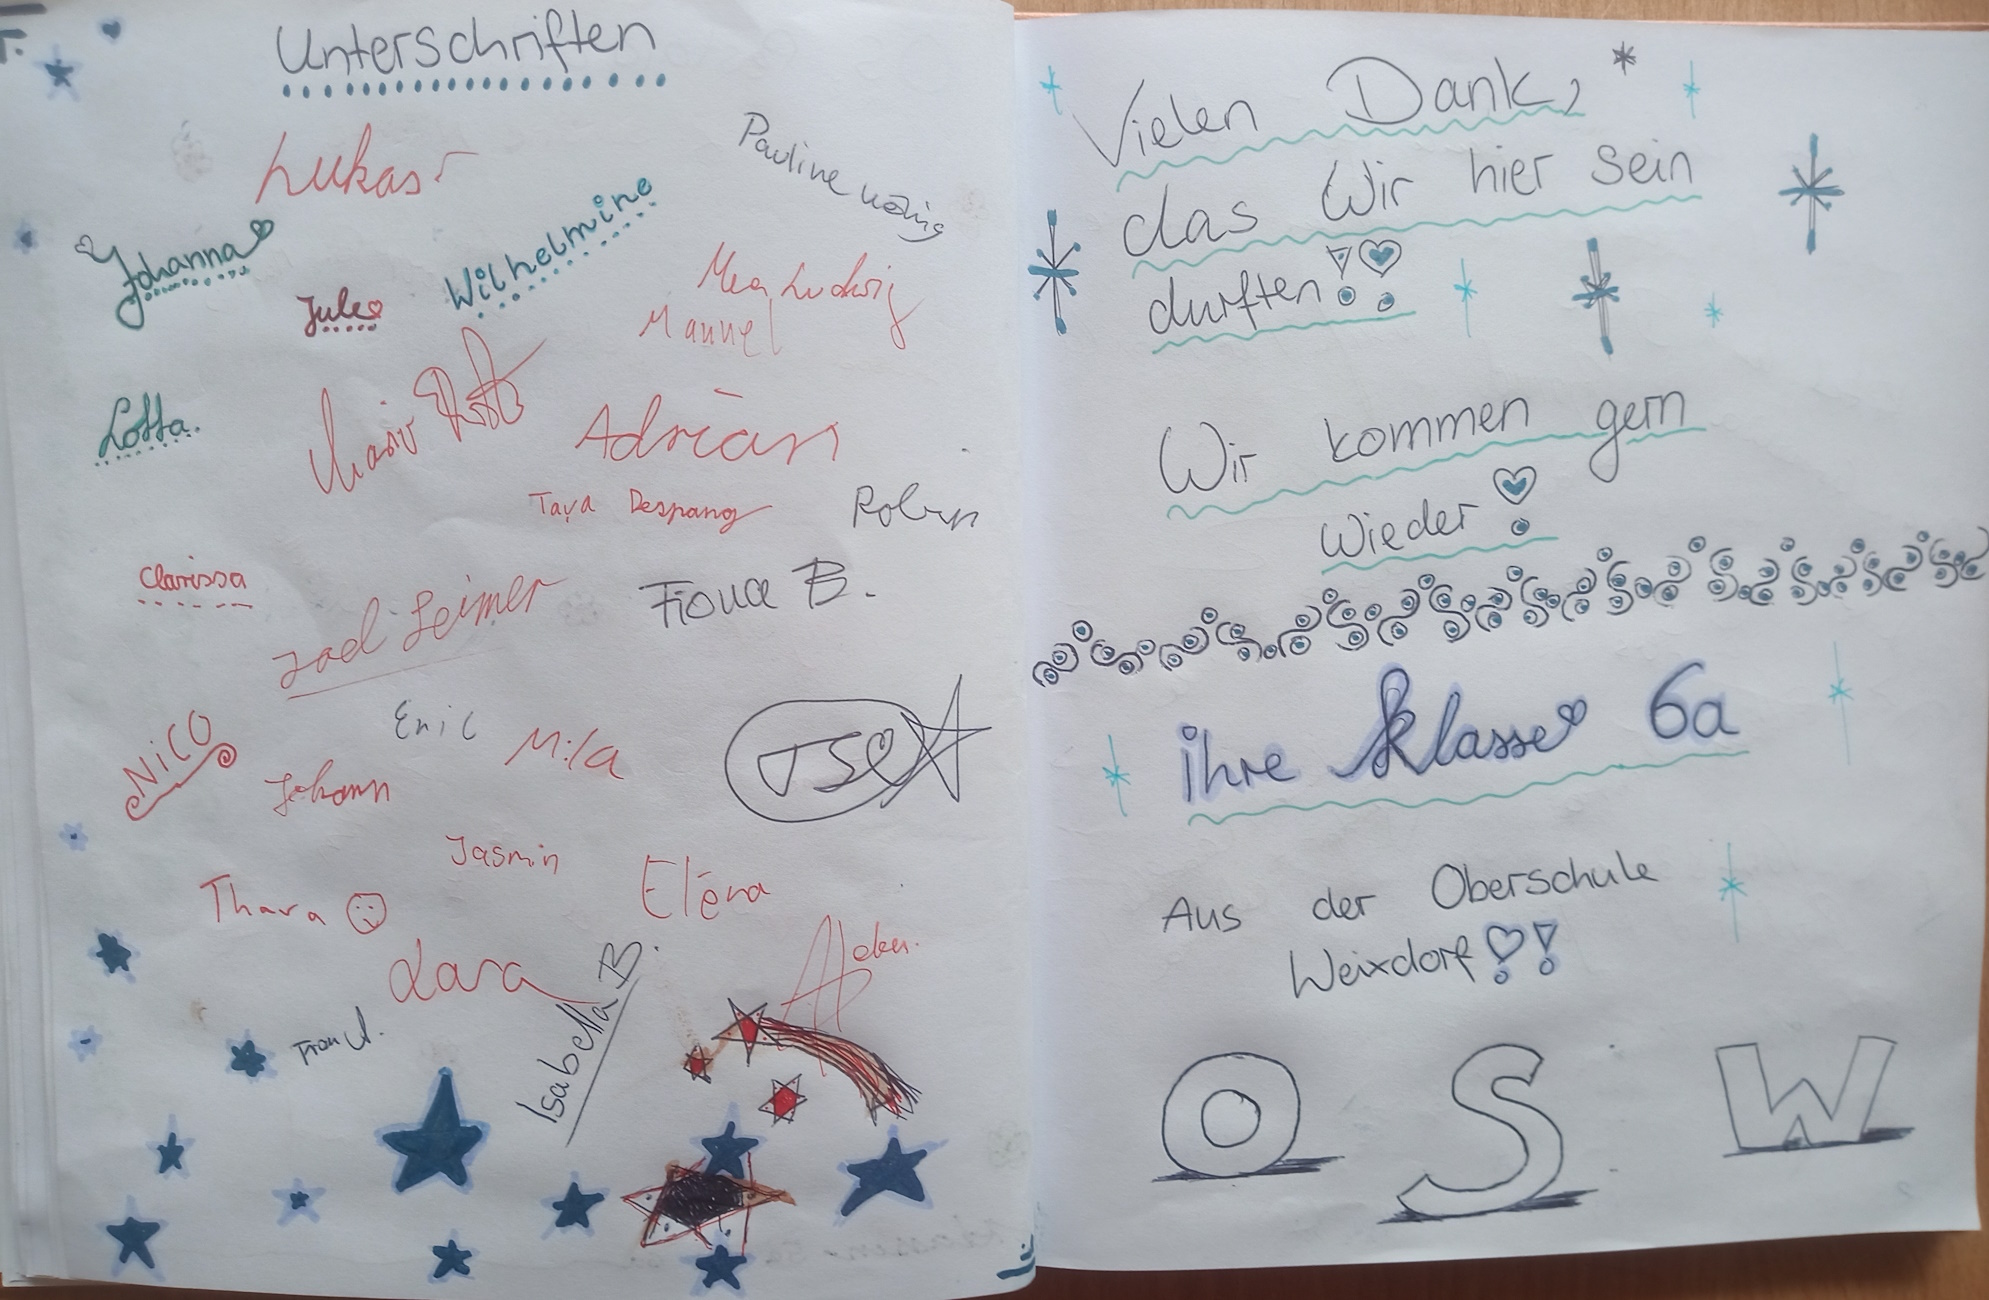 Unterschriften
Lukas
Pauline König
Johanna
Wilhelmine
Jule
Mea Ludwig
Manuel
Lotta.
Adrian
Taya Despang
Robyn
Clarissa
Fiona B.
Joel Leimer
Eric
Mila
NiCO
Johann
Jasmin
Elena
Thara
Lara
Isabella B.
Vielen Dank,
das Wir hier sein
durften!!
Wir kommen gern
Wieder!
ihre Klasse 6a
Aus der Oberschule
Weixdorf!!
O S W